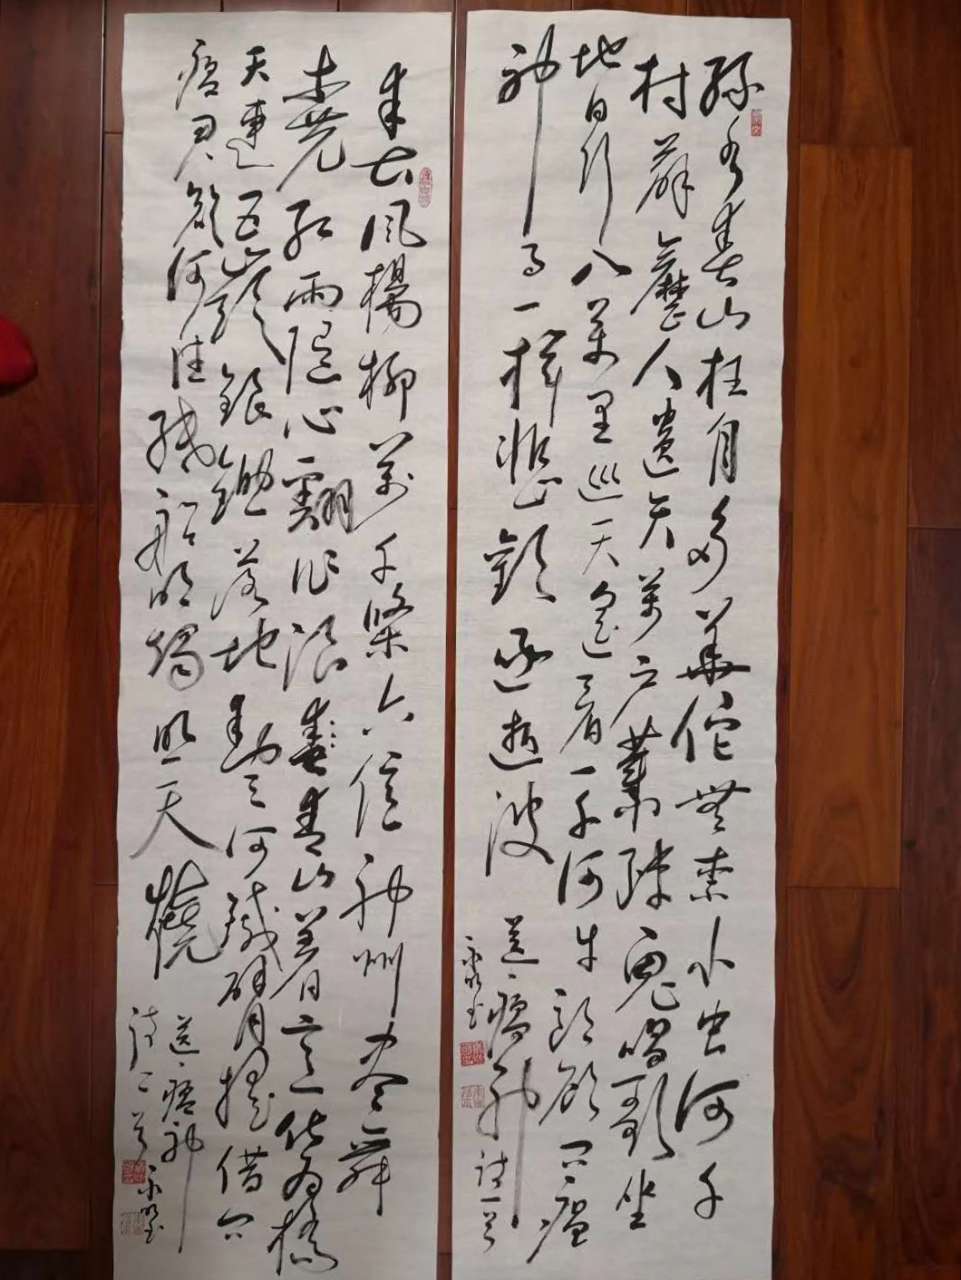 绿水青山枉自多華佗無奈小虫何千
村薜荔人遗矢萬户蕭疏鬼唱歌坐
地日行八萬里巡天遥看一千河牛郎欲问瘟
神事一样悲歡逐逝波
送瘟神诗一首
春風楊柳萬千條六億神州尽舜
堯红雨随心翻作浪青山着意化为橋
天連五嶺銀鋤落地動三河鐵臂摇借问
瘟君欲何往纸船明燭照天燒
送瘟神
诗二首